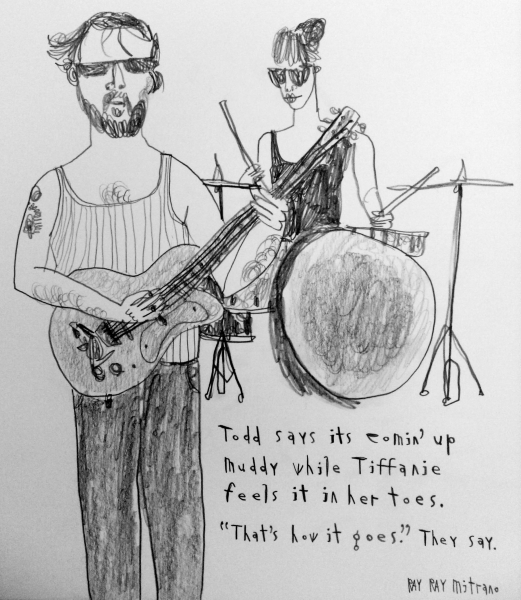 Todd says its comin' up
muddy while Tiffanie
feels it in her toes.
"That's how it goes." They say.
RAY RAY Mitrano